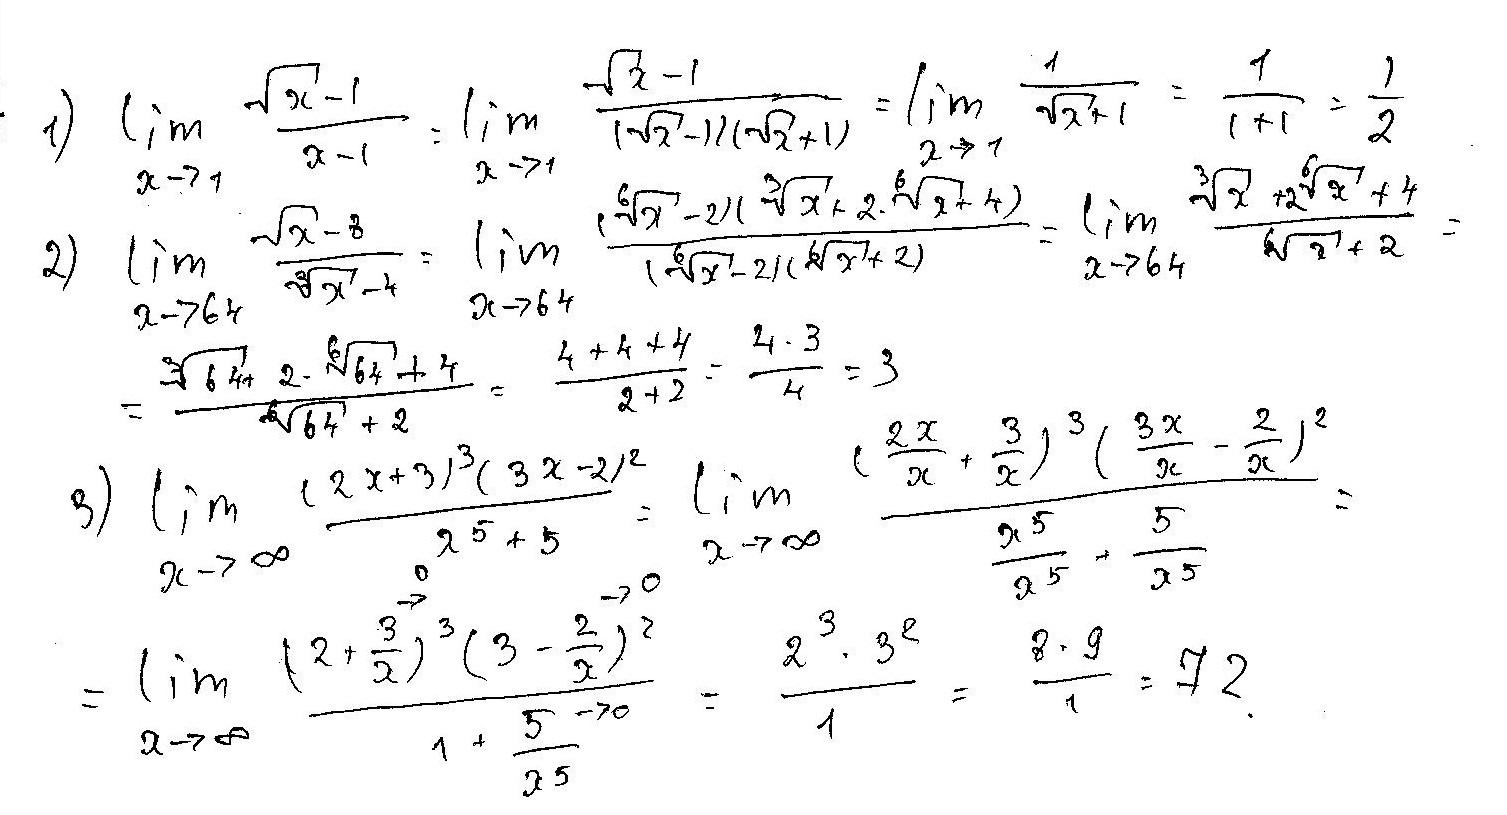 1) lim x→1 (√x − 1)/(x − 1) = lim x→1 (√x − 1)/((√x − 1)(√x + 1)) = lim x→1 1/(√x + 1) = 1/(1 + 1) = 1/2
2) lim x→64 (√x − 8)/(∛x − 4) = lim x→64 ((⁶√x − 2)(∛x + 2·⁶√x + 4))/((⁶√x − 2)(⁶√x + 2)) = lim x→64 (∛x + 2⁶√x + 4)/(⁶√x + 2) =
= (∛64 + 2·⁶√64 + 4)/(⁶√64 + 2) = (4 + 4 + 4)/(2 + 2) = (4·3)/4 = 3
3) lim x→∞ ((2x + 3)³(3x − 2)²)/(x⁵ + 5) = lim x→∞ ((2x/x + 3/x)³(3x/x − 2/x)²)/(x⁵/x⁵ + 5/x⁵) =
= lim x→∞ ((2 + 3/x →0)³(3 − 2/x →0)²)/(1 + 5/x⁵ →0) = (2³·3²)/1 = (8·9)/1 = 72.